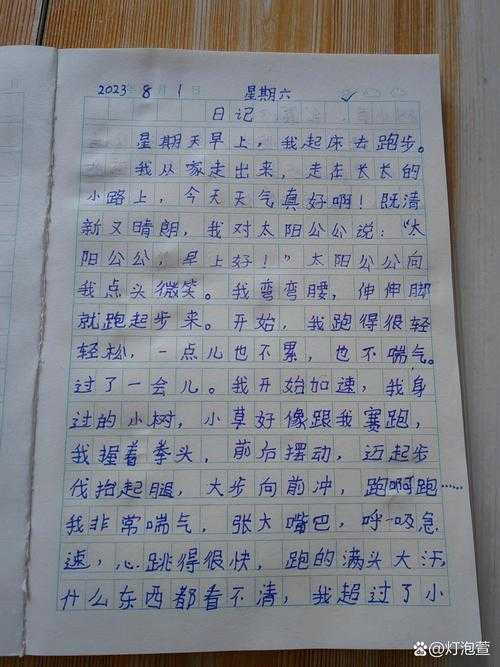 2023年8月1日 星期六
日记
星期天早上，我起床去跑步。
我从家走出来，走在长长的
小路上，今天天气真好啊！既清
新又晴朗，我对太阳公公说：“太
阳公公，早上好！”太阳公公向
我点头微笑。我弯弯腰，伸伸脚
就跑起步来。开始，我跑得很轻
轻松，一点儿也不累，也不喘气。
过了一会儿。我开始加速，我身
过的小树，小草好像跟我赛跑，
我握着拳头，前后摆动，迈起步
伐抬起腿，大步向前冲，跑啊跑……
我非常喘气，张大嘴巴，呼吸急
速，心跳得很快，跑的满头大汗，
什么东西都看不清，我超过了小
@灯泡萱